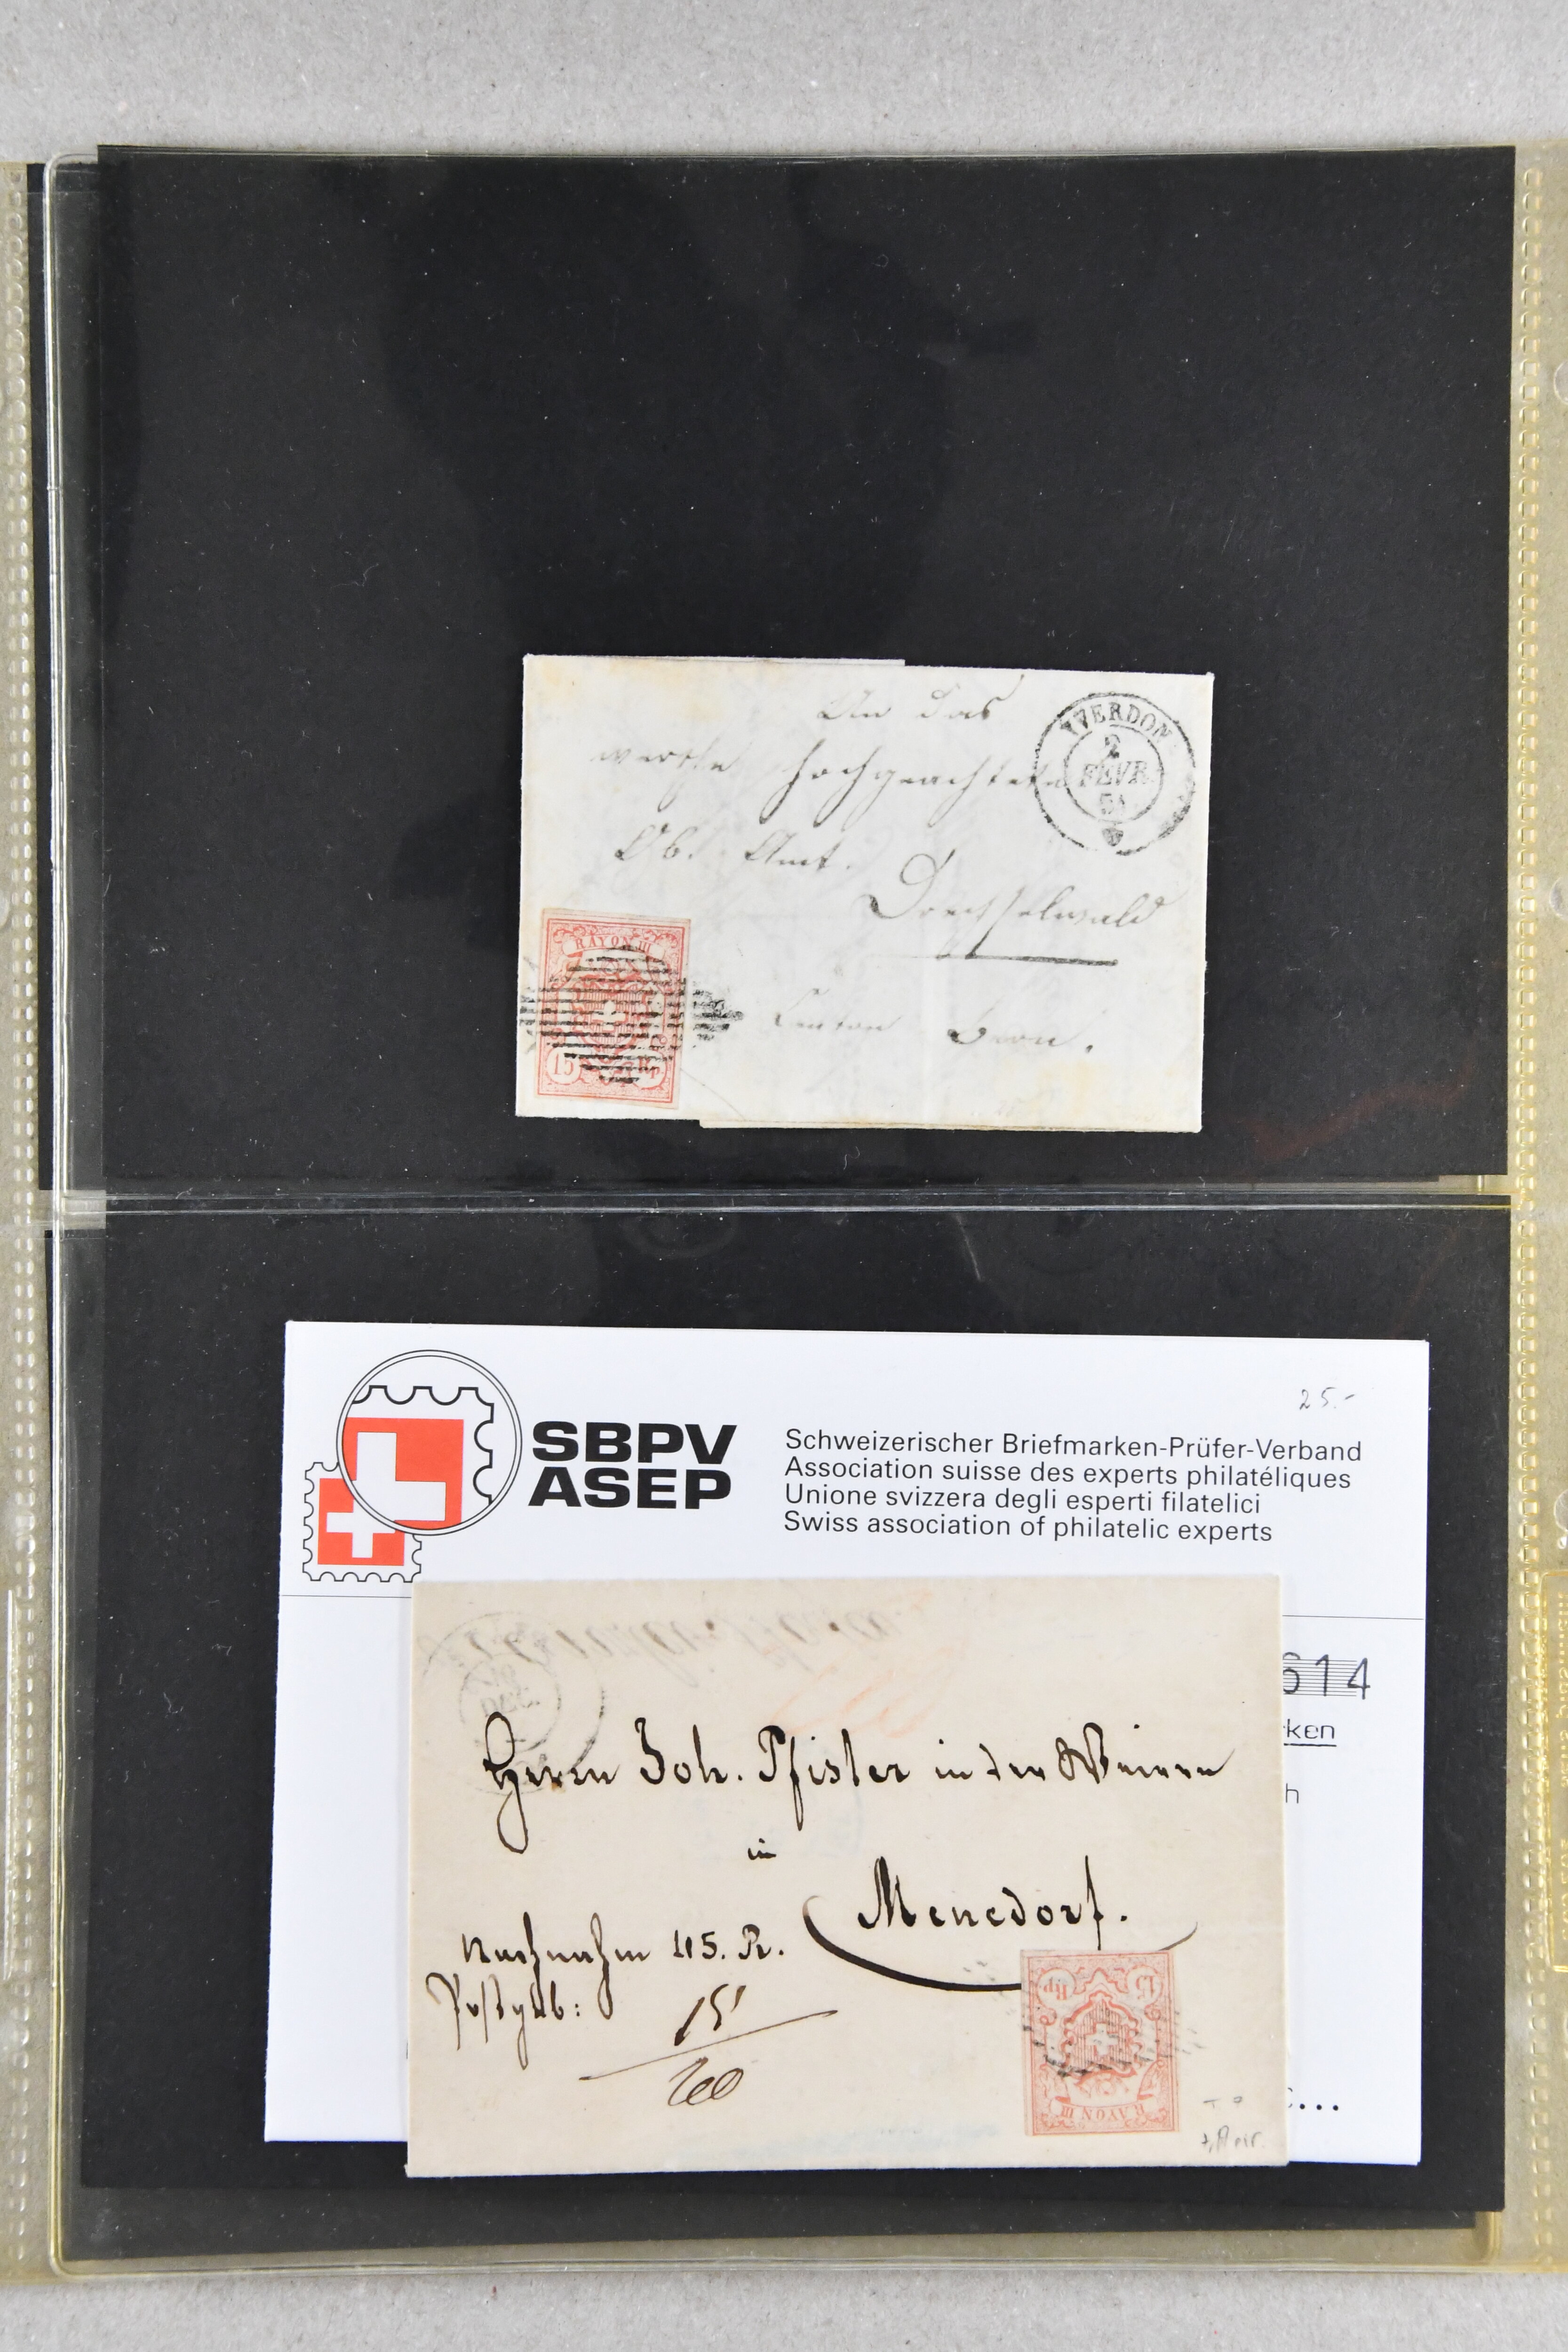 An das
hochgeachtete
Amt.
Canton Bern.
YVERDON
2
FEVR.
RAYON III
15 Rp.
25.-
SBPV
ASEP
Schweizerischer Briefmarken-Prüfer-Verband
Association suisse des experts philatéliques
Unione svizzera degli esperti filatelici
Swiss association of philatelic experts
614
rken
h
DEC.
Herrn Joh. Pfister in der
in
Menedorf.
Nachnahm 45. R.
Postgeb:
15
60
15 Rp
RAYON III